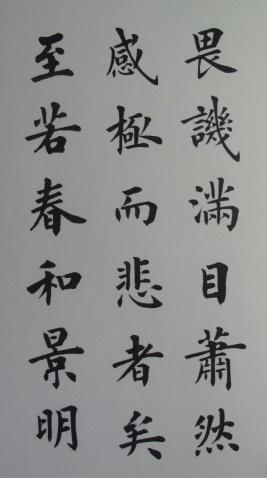 畏譏滿目蕭然
感極而悲者矣
至若春和景明